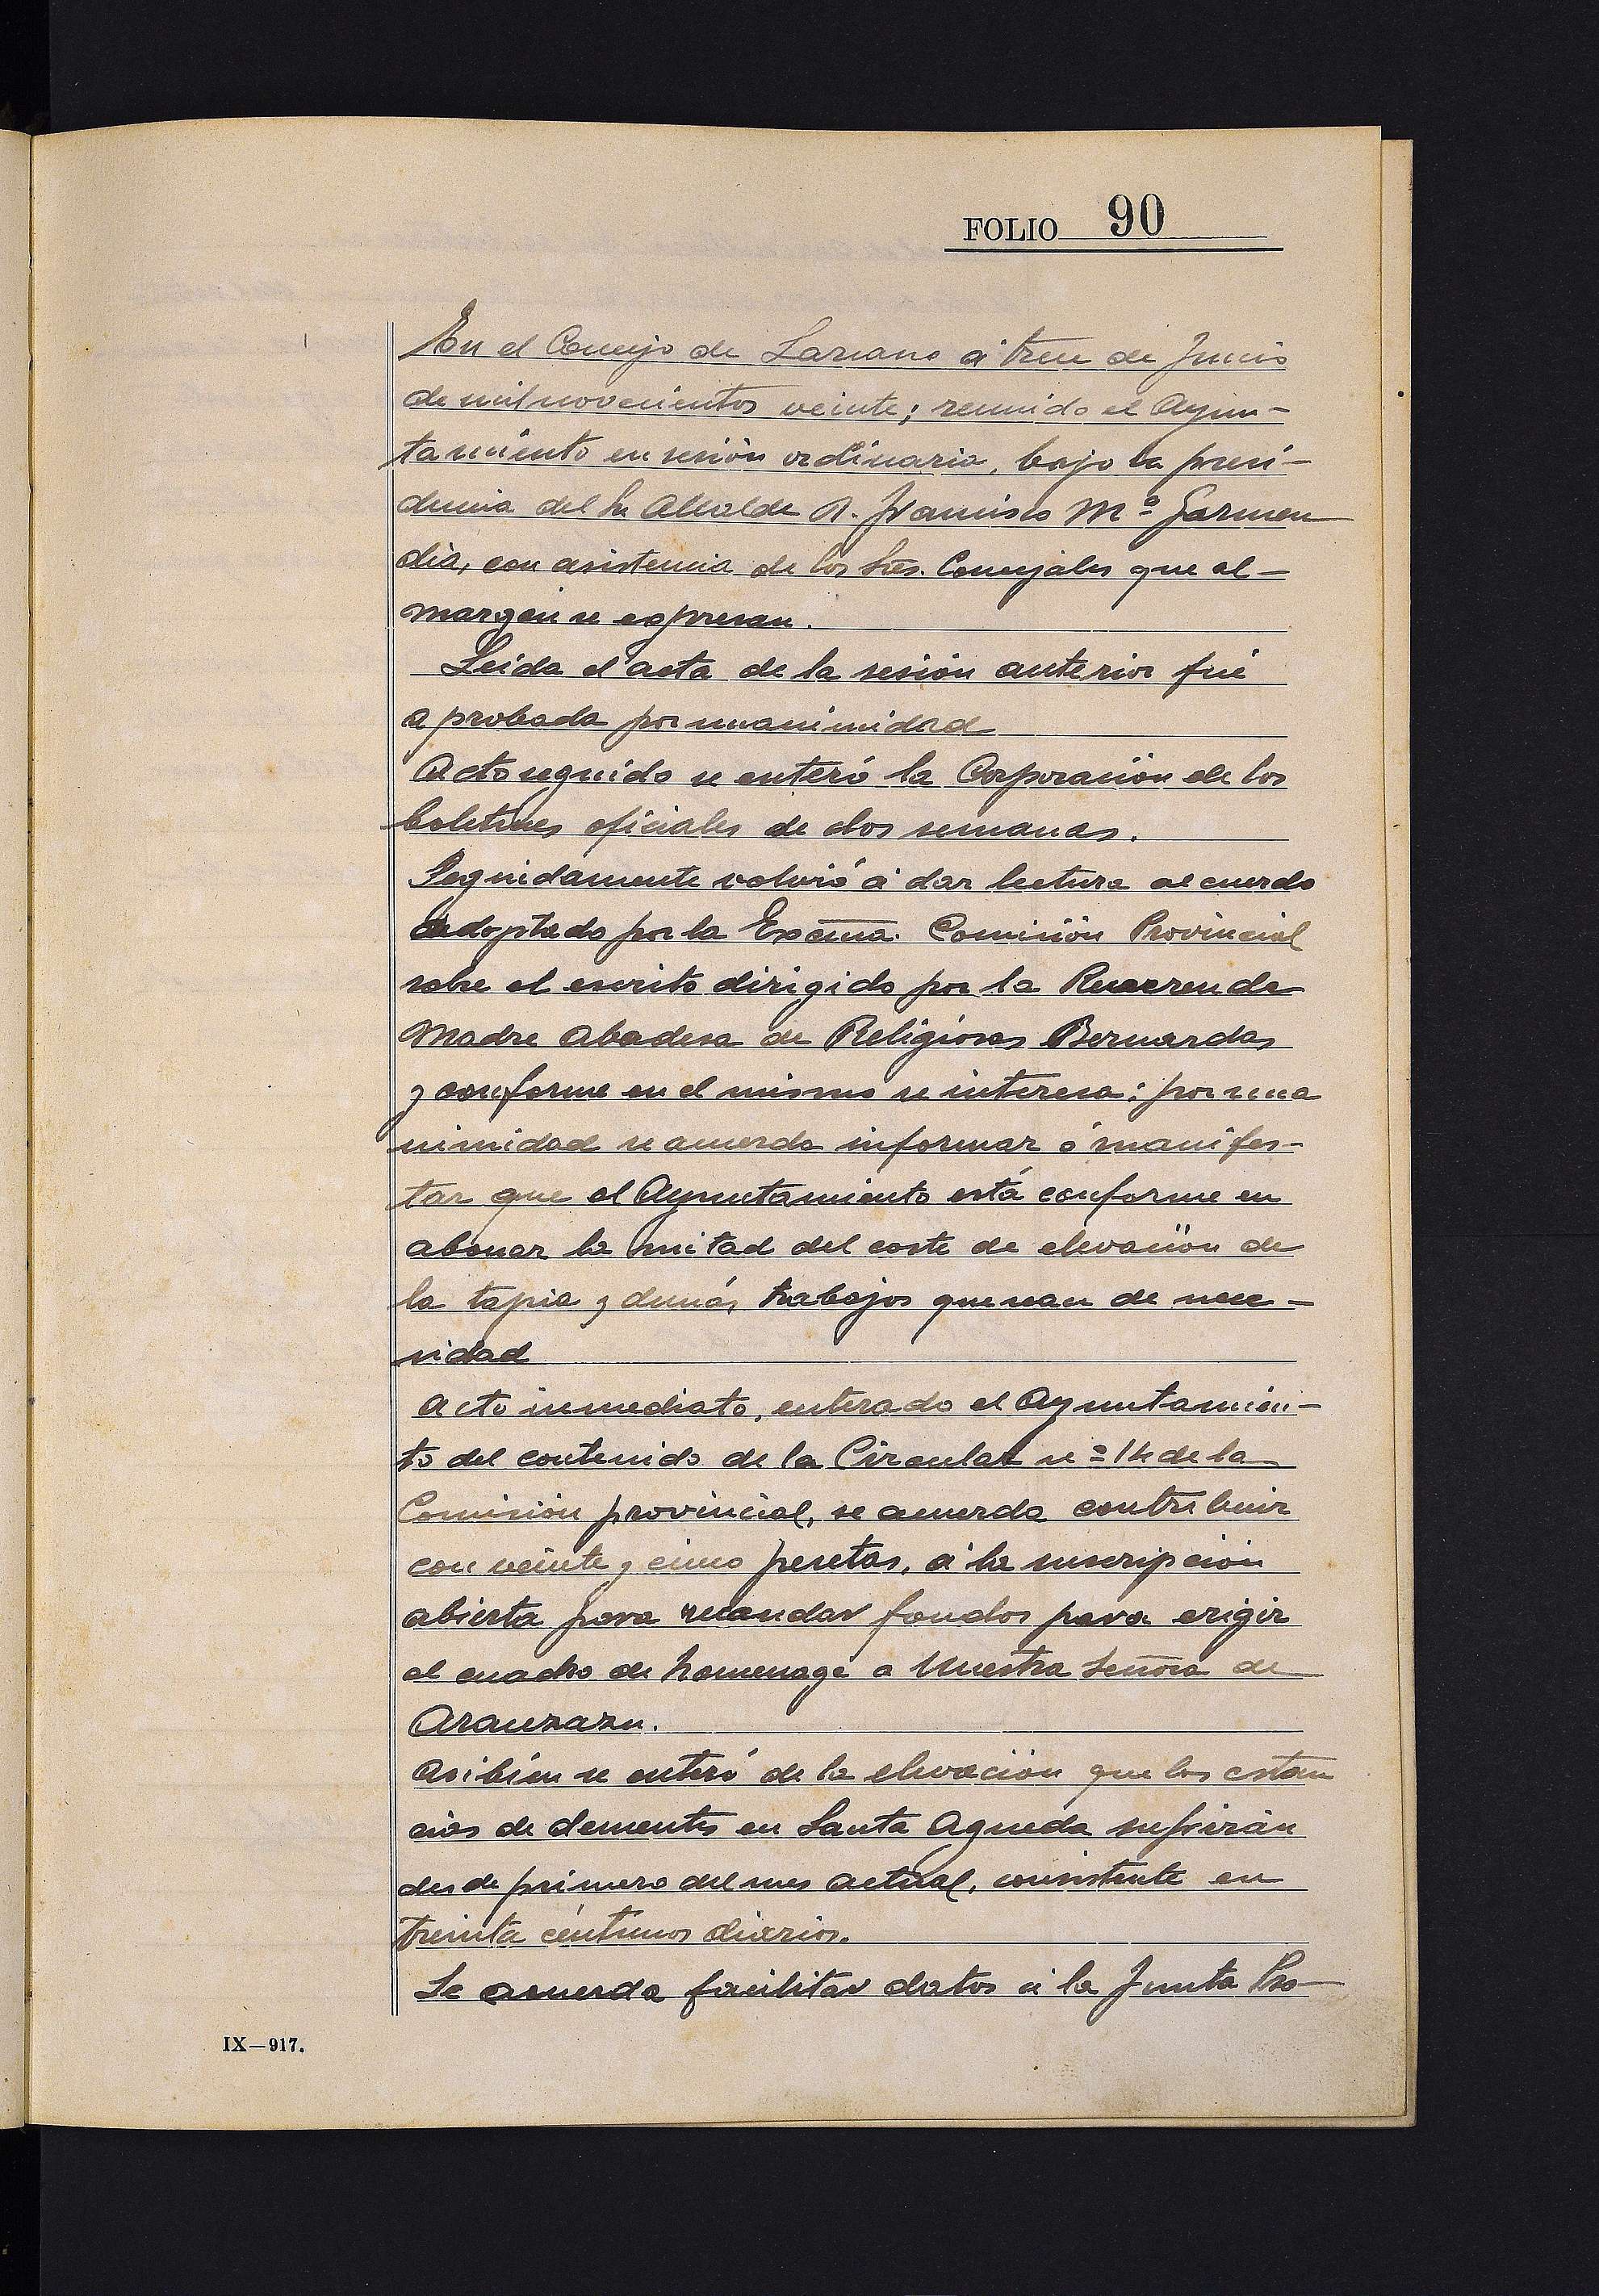 FOLIO 90
En el Concejo de Lazcano á trece de Junio
de mil novecientos veinte; reunido el Ayun-
tamiento en sesión ordinaria, bajo la presi-
dencia del Sr Alcalde D. Francisco Mª Garmen
dia, con asistencia de los Sres. Concejales que al-
margen se expresan.
Leida el acta de la sesión anterior fué
aprobada por unanimidad
Acto seguido se enteró la Corporación de los
boletines oficiales de dos semanas.
Seguidamente volvió á dar lectura al cuerdo
adoptado por la Excma. Comisión Provincial
sobre el escrito dirigido por la Reverenda
Madre Abadesa de Religiosas Bernardas
y conforme en el mismo se interesa: por una
nimidad se acuerda informar ó manifes-
tar que el Ayuntamiento está conforme en
abonar la mitad del coste de elevación de
la tapia y demás trabajos que sean de nece-
sidad
Acto inmediato, enterado el Ayuntamien-
to del contenido de la Circular nº 14 de la
Comisión provincial, se acuerda contribuir
con veinte y cinco pesetas, á la suscripción
abierta para recaudar fondos para erigir
el cuadro de homenage a Nuestra Señora de
Aranzazu.
Asibien se enteró de la elevación que las estan
cias de dementes en Santa Agueda sufrirán
desde primero del mes actual, consistente en
treinta céntimos diarios.
Se acuerda facilitar datos á la Junta Pro-
IX—917.